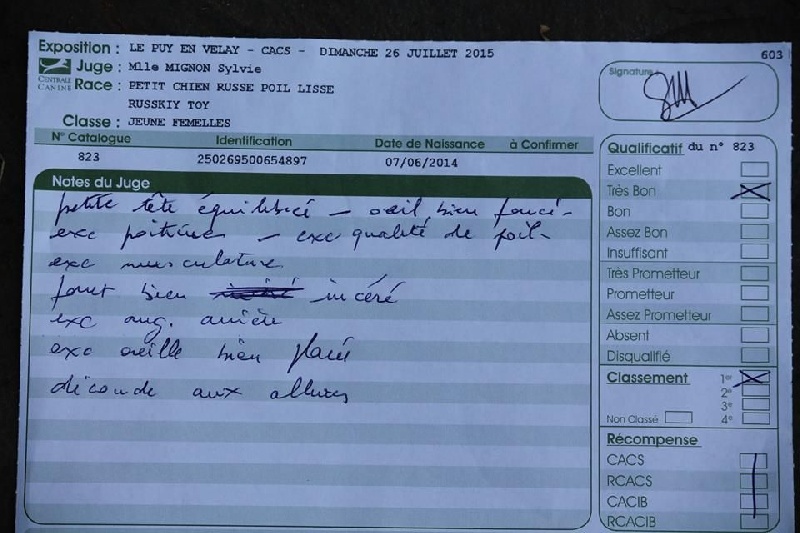 Exposition : LE PUY EN VELAY - CACS - DIMANCHE 26 JUILLET 2015
603
CENTRALE CANINE
Juge : Mlle MIGNON Sylvie
Race : PETIT CHIEN RUSSE POIL LISSE
RUSSKIY TOY
Classe : JEUNE FEMELLES
Signature
N° Catalogue Identification Date de Naissance à Confirmer
823 250269500654897 07/06/2014
Notes du Juge
petite tête équilibrée - oeil bien foncé -
exc poitrine - exc qualité de poil -
exc musculature
fouet bien inséré
exc ang. arrière
exc oreille bien placée
découde aux allures
Qualificatif du n° 823
Excellent
Très Bon
Bon
Assez Bon
Insuffisant
Très Prometteur
Prometteur
Assez Prometteur
Absent
Disqualifié
Classement 1er
2e
3e
Non Classé 4e
Récompense
CACS
RCACS
CACIB
RCACIB